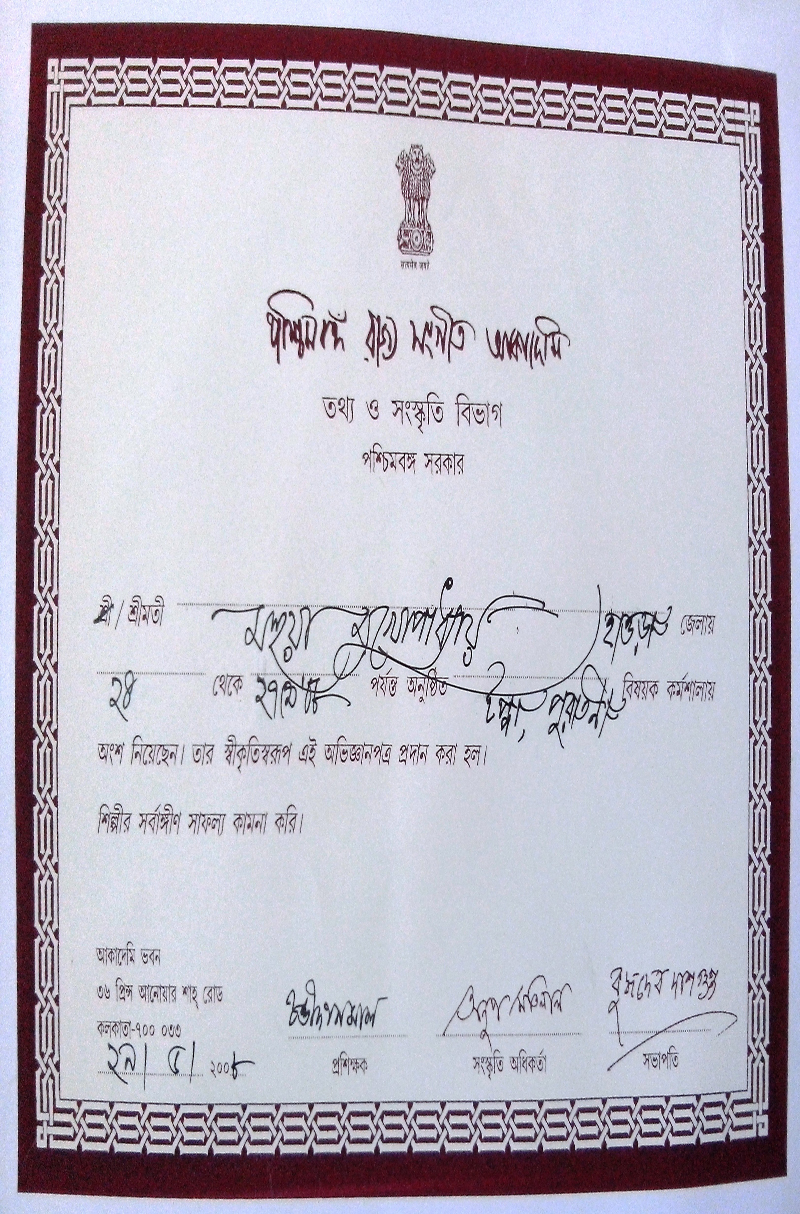 सत्यमेव जयते
পশ্চিমবঙ্গ রাজ্য সংগীত আকাদেমি
তথ্য ও সংস্কৃতি বিভাগ
পশ্চিমবঙ্গ সরকার
শ্রী / শ্রীমতী মহুয়া মুখোপাধ্যায় হাওড়া জেলায়
২৪ থেকে পর্যন্ত অনুষ্ঠিত টপ্পা, পুরাতনী বিষয়ক কর্মশালায়
অংশ নিয়েছেন। তার স্বীকৃতিস্বরূপ এই অভিজ্ঞানপত্র প্রদান করা হল।
শিল্পীর সর্বাঙ্গীণ সাফল্য কামনা করি।
আকাদেমি ভবন
৩৬ প্রিন্স আনোয়ার শাহ্ রোড
কলকাতা-৭০০ ০৩৩
২৯/ ৫/ ২০০৮
চণ্ডীদাস মাল
প্রশিক্ষক
অনুপ মতিলাল
সংস্কৃতি অধিকর্তা
বুদ্ধদেব দাশগুপ্ত
সভাপতি